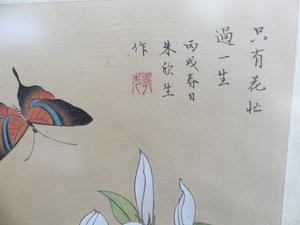 只有花忙
過一生
丙戌春日
朱欣生
作